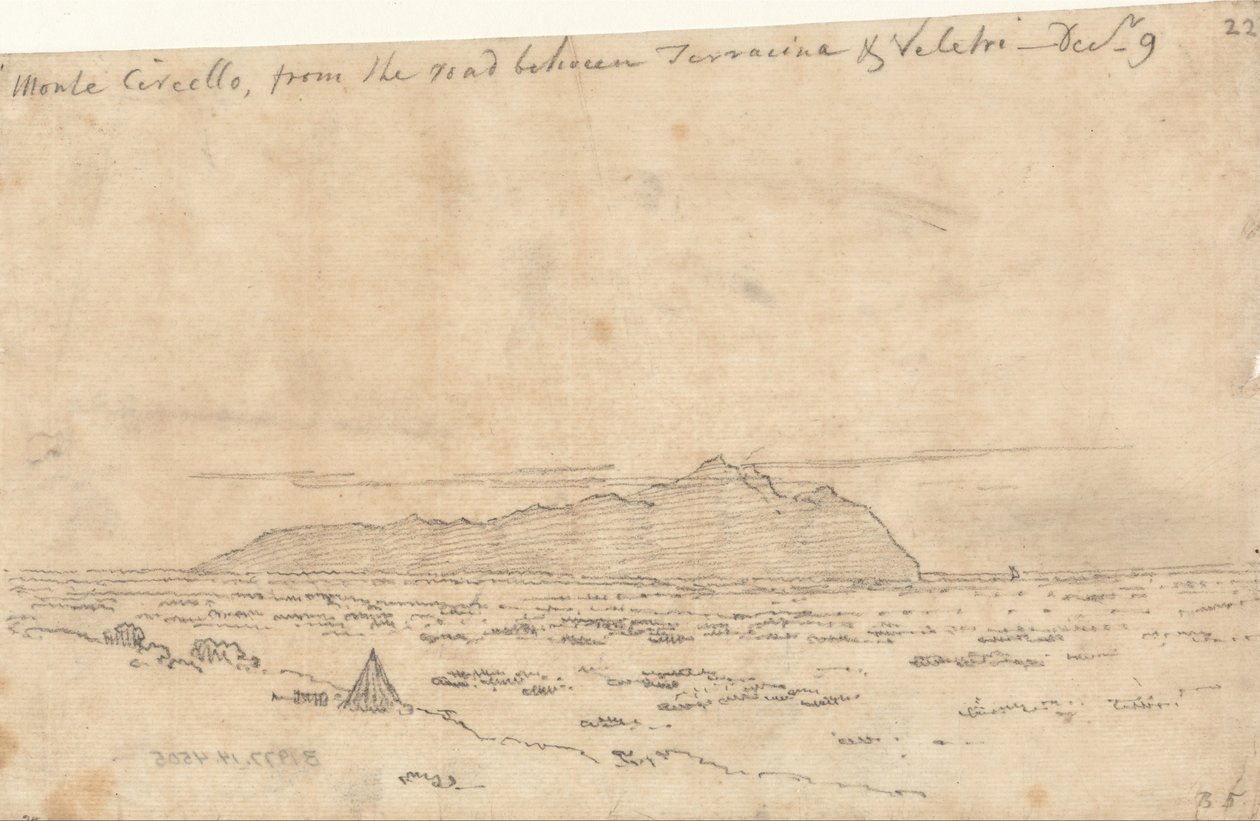 Monte Circello, from the road between Terracina & Veletri – Decr 9
22
B1977.14.4505
B 5